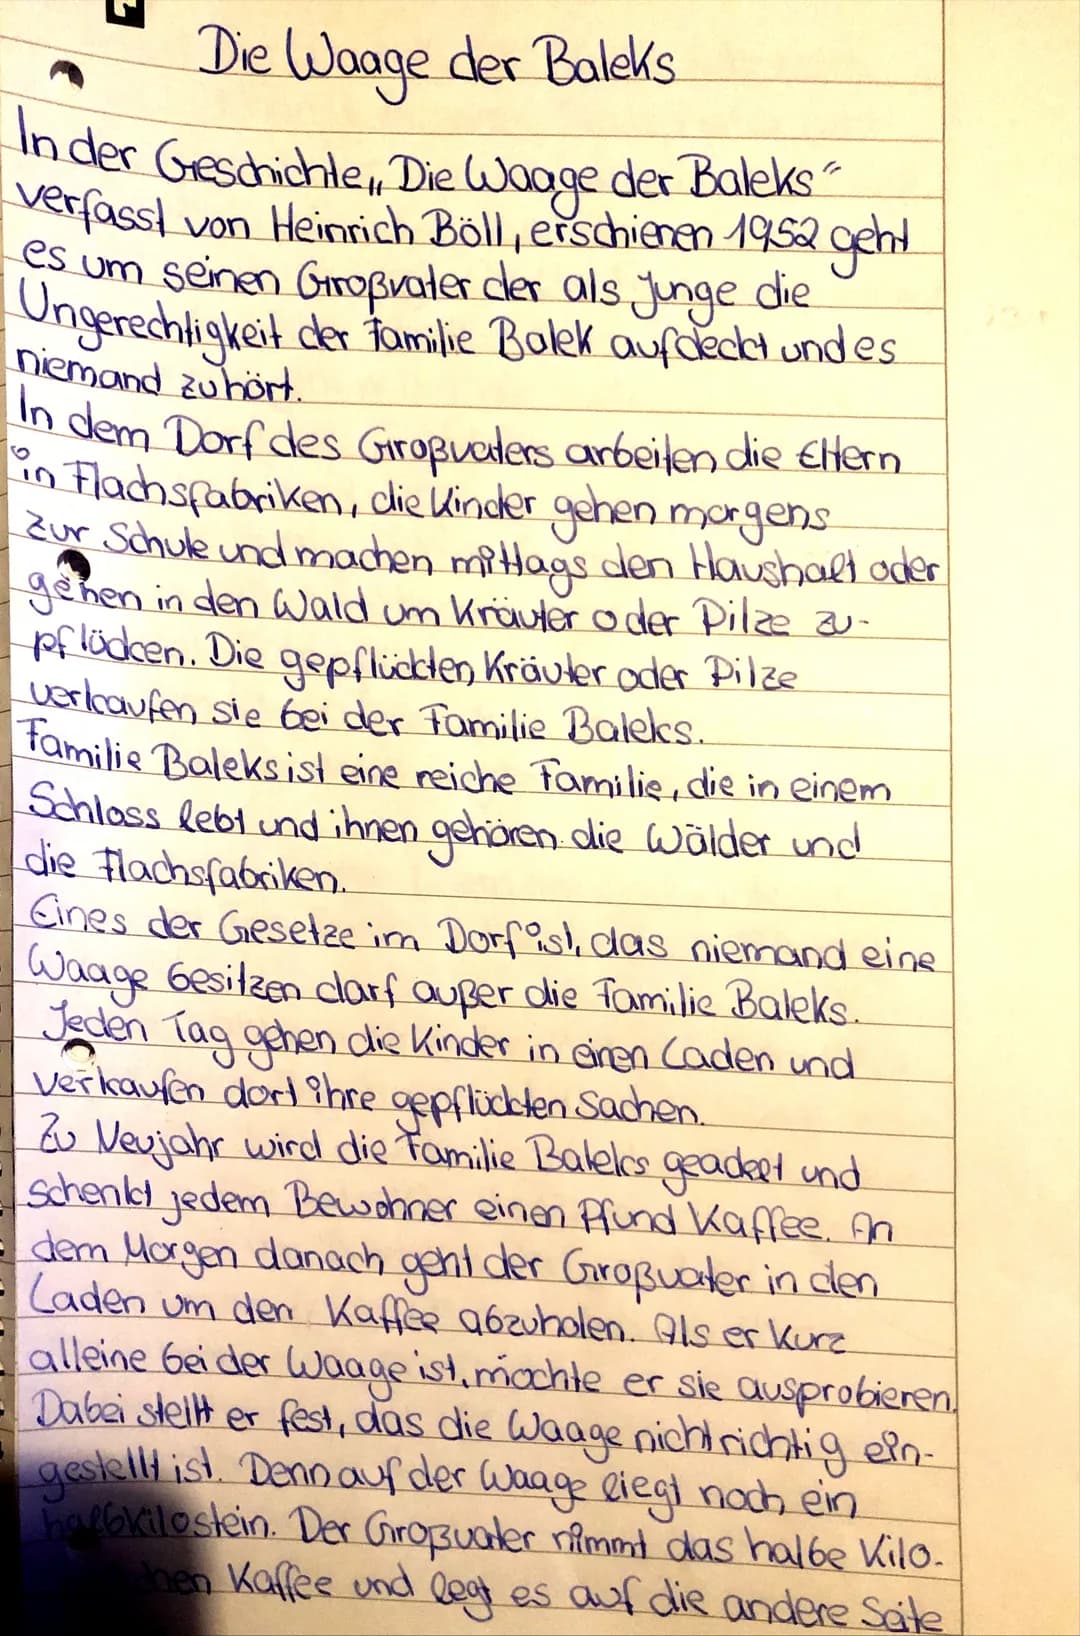 Die Waage der Baleks
In der Geschichte „Die Waage der Baleks"
verfasst von Heinrich Böll, erschienen 1952 geht
es um seinen Großvater der als Junge die
Ungerechtigkeit der Familie Balek aufdeckt und es
niemand zuhört.
In dem Dorf des Großvaters arbeiten die Eltern
in Flachsfabriken, die Kinder gehen morgens
zur Schule und machen mittags den Haushalt oder
gehen in den Wald um Kräuter oder Pilze zu-
pflücken. Die gepflückten Kräuter oder Pilze
verkaufen sie bei der Familie Baleks.
Familie Baleks ist eine reiche Familie, die in einem
Schloss lebt und ihnen gehören die Wälder und
die Flachsfabriken.
Eines der Gesetze im Dorf ist, das niemand eine
Waage besitzen darf außer die Familie Baleks.
Jeden Tag gehen die Kinder in einen Laden und
verkaufen dort ihre gepflückten Sachen.
Zu Neujahr wird die Familie Baleks geadelt und
schenkt jedem Bewohner einen Pfund Kaffee. An
dem Morgen danach geht der Großvater in den
Laden um den Kaffee abzuholen. Als er kurz
alleine bei der Waage ist, möchte er sie ausprobieren.
Dabei stellt er fest, das die Waage nicht richtig ein-
gestellt ist. Denn auf der Waage liegt noch ein
halbkilostein. Der Großvater nimmt das halbe Kilo-
Kaffee und legt es auf die andere Seite